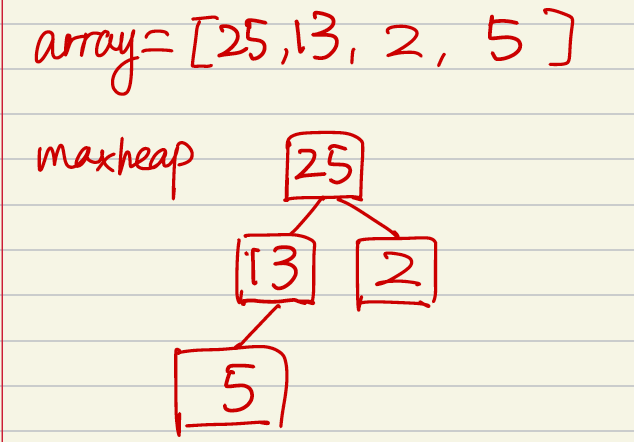 array= [25,13, 2, 5]
maxheap
25
13 2
5